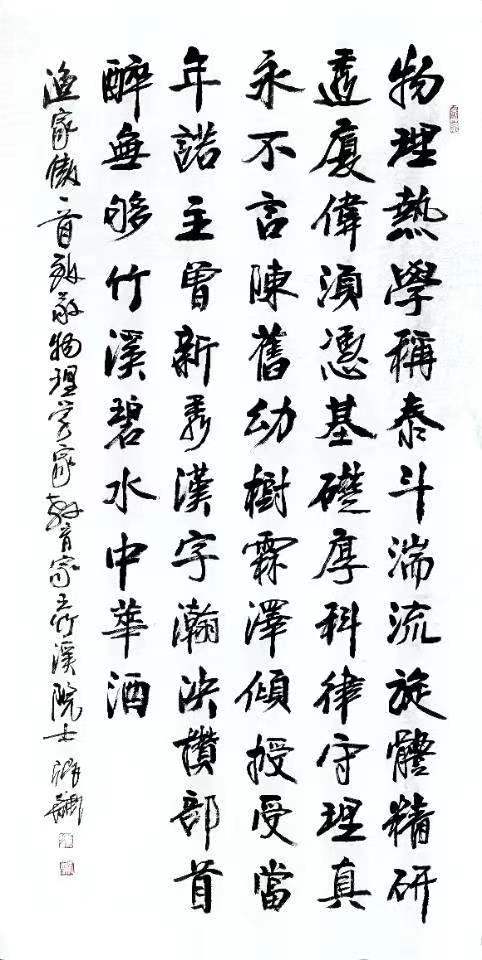 物理熱學稱泰斗湍流旋體精研
透廈偉須憑基礎厚科律守理真
永不言陳舊幼樹霖澤傾授受當
年諾主曾新秀漢字瀚泱攢部首
醉無夠竹溪碧水中華酒
渔家傲一首致敬物理学家教育家王竹溪院士